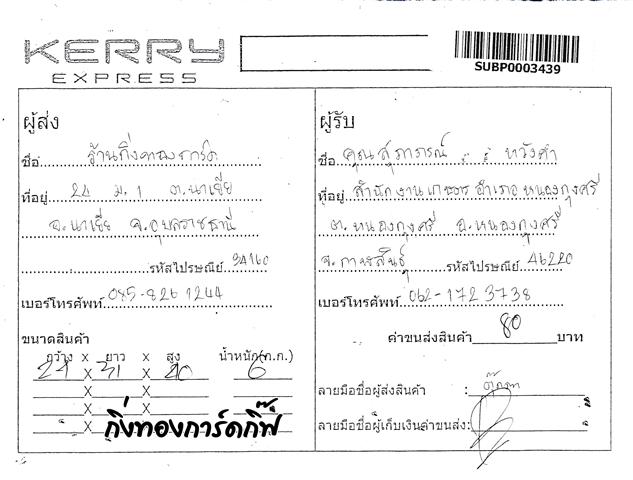 KERRY
EXPRESS
SUBP0003439
ผู้ส่ง
ชื่อ ร้านกิ่งทองการ์ด
ที่อยู่ 24 ม.1 ต.นาเยีย
อ.นาเยีย จ.อุบลราชธานี
รหัสไปรษณีย์ 34160
เบอร์โทรศัพท์ 045-826 1244
ขนาดสินค้า
กว้าง X ยาว X สูง น้ำหนัก(ก.ก.)
24 X 31 X 40 6
X X
X X
X กิ่งทองการ์ดกิ๊ฟ
ผู้รับ
ชื่อ คุณสุภาภรณ์ หวังคำ
ที่อยู่ สำนักงานเกษตร อำเภอหนองกุงศรี
ต.หนองกุงศรี อ.หนองกุงศรี
จ.กาฬสินธุ์ รหัสไปรษณีย์ 46220
เบอร์โทรศัพท์ 062-172 3738
ค่าขนส่งสินค้า 80 บาท
ลายมือชื่อผู้ส่งสินค้า :
ลายมือชื่อผู้เก็บเงินค่าขนส่ง: